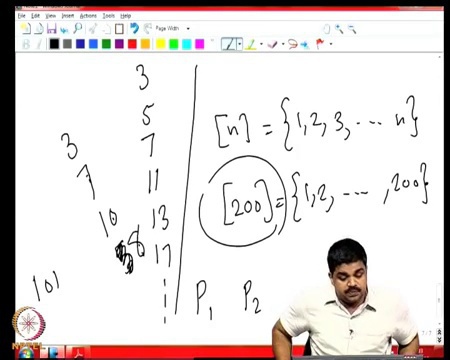 File Edit View Insert Actions Tools Help
Page Width
3
5
7
11
13
17
3
7
10
8
101
[n] = {1, 2, 3, ... n}
[200] = {1, 2, ..., 200}
P1 P2
NPTEL